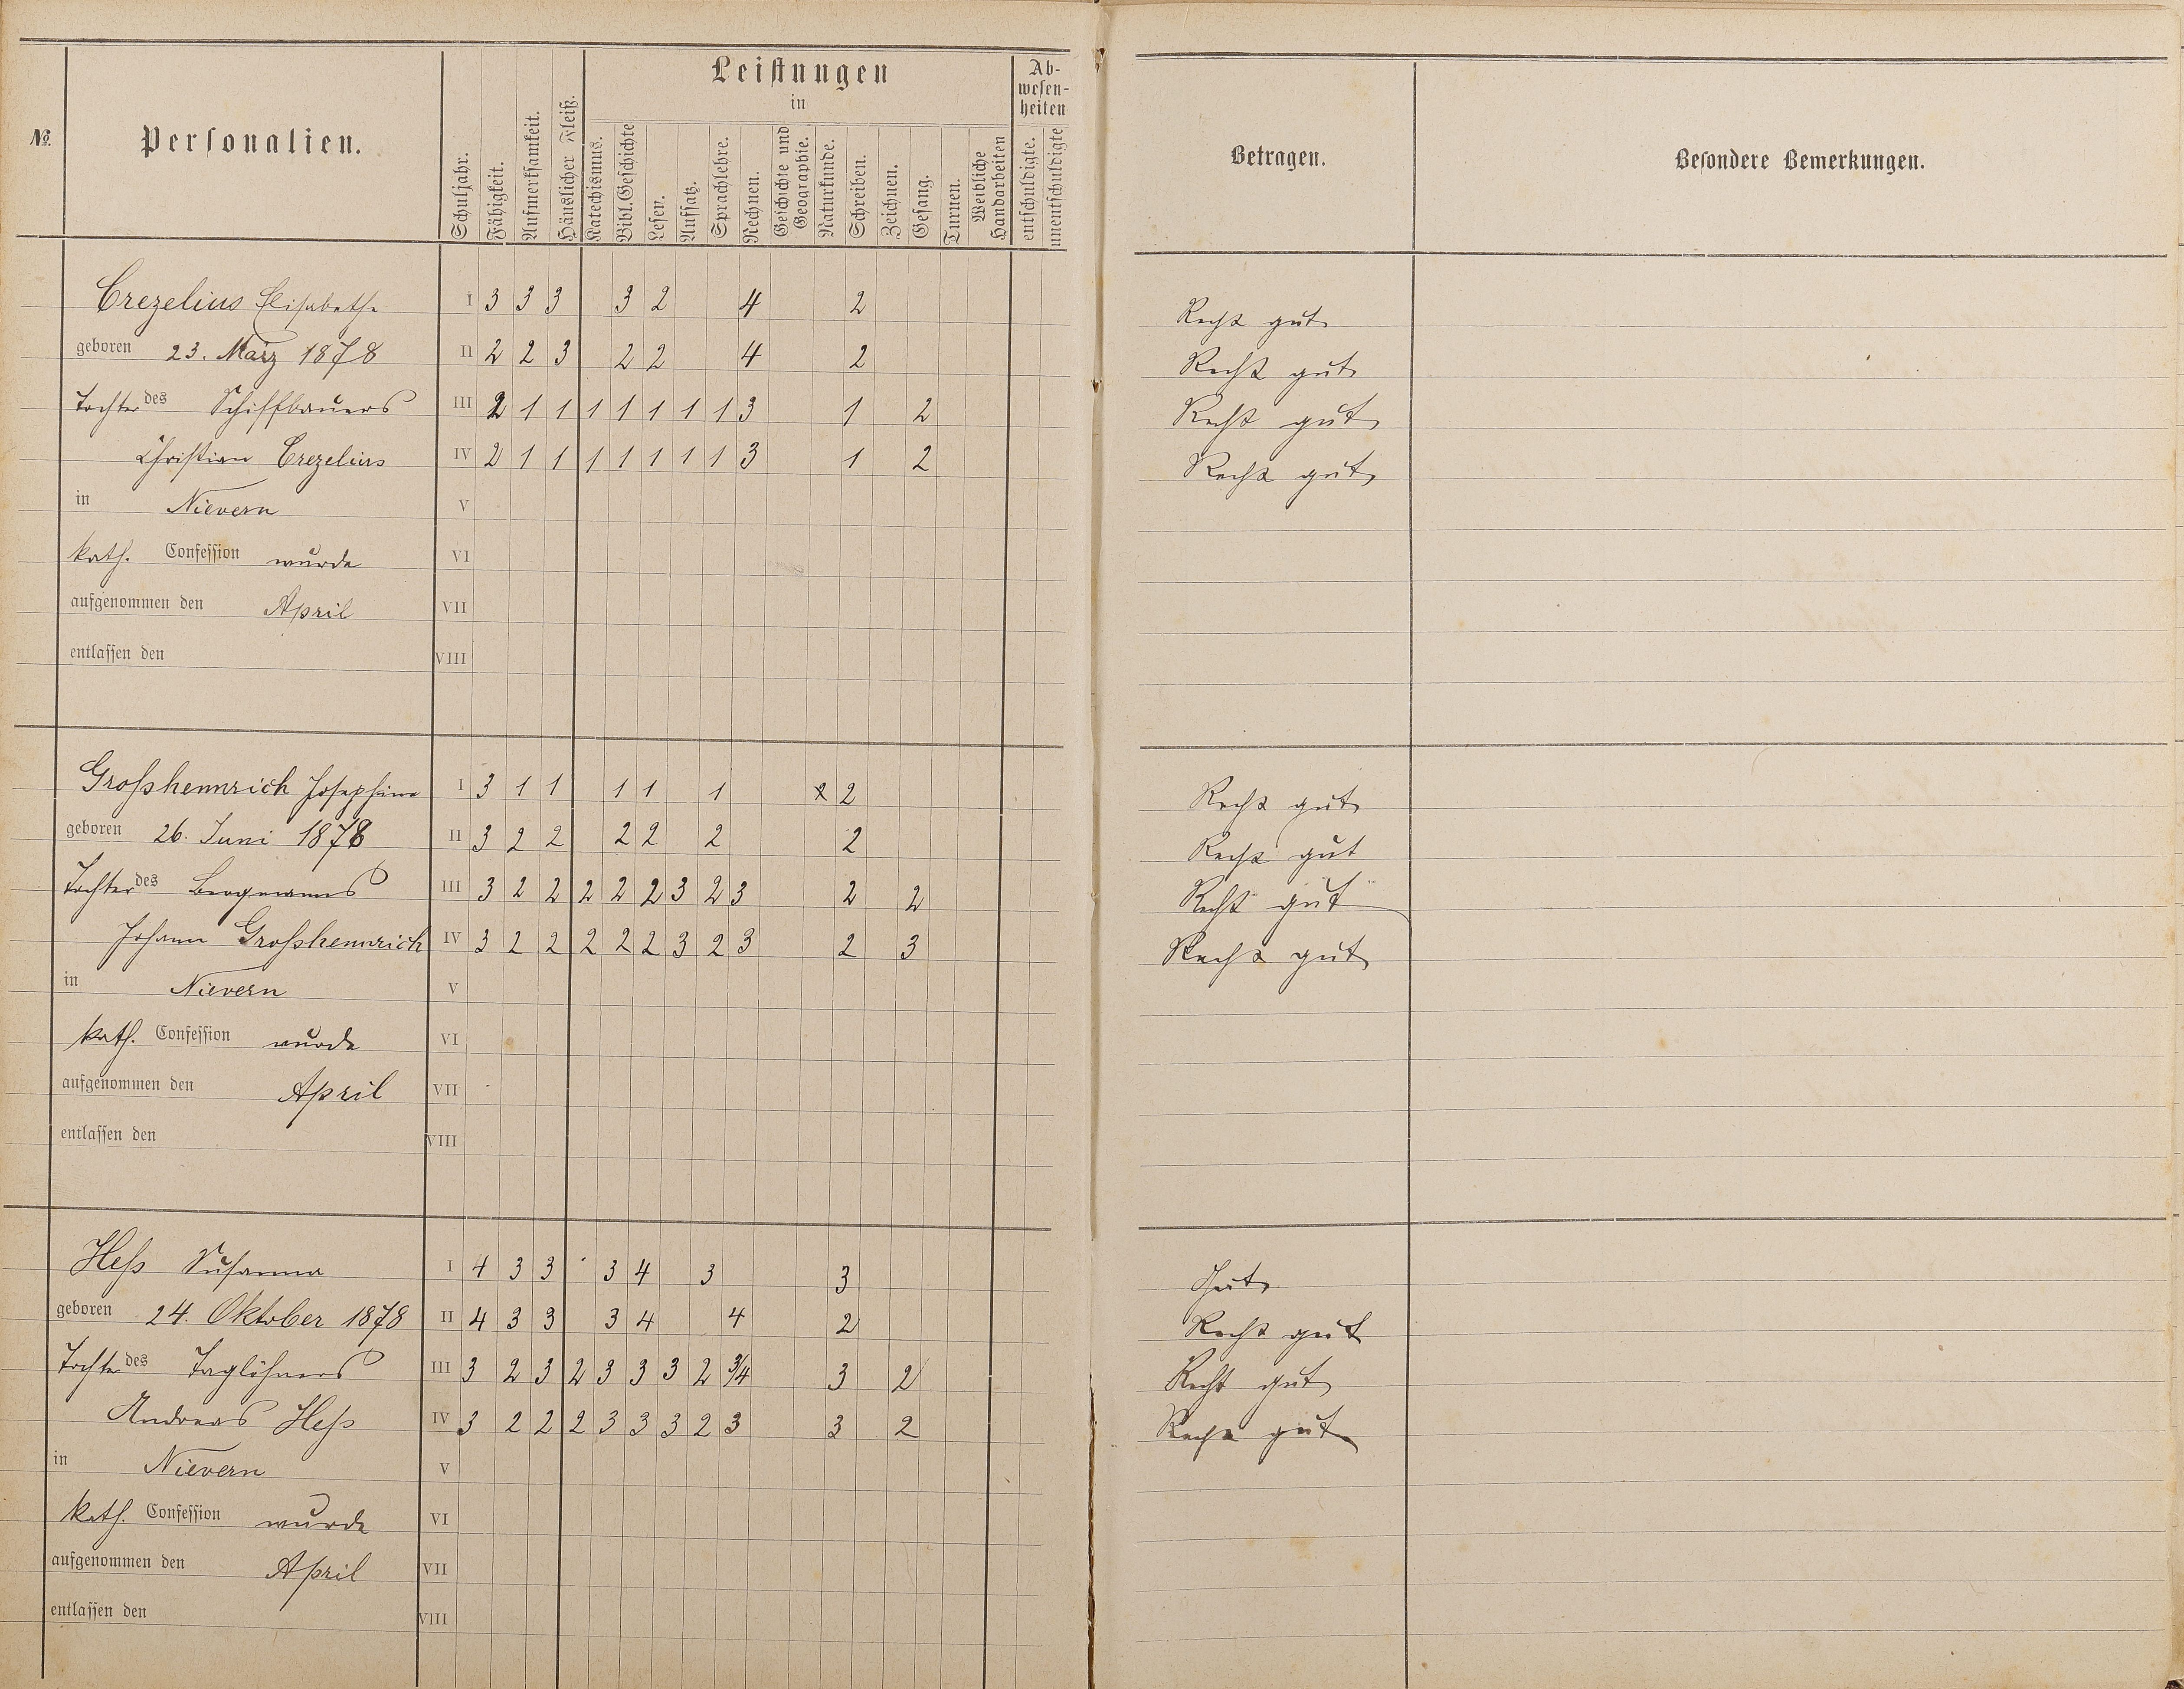 Leistungen
in
Ab-
wesen-
heiten
№.
Personalien.
Schuljahr.
Fähigkeit.
Aufmerksamkeit.
Häuslicher Fleiß.
Katechismus.
Bibl. Geschichte
Lesen.
Aufsatz.
Sprachlehre.
Rechnen.
Geschichte und
Geographie.
Naturkunde.
Schreiben.
Zeichnen.
Gesang.
Turnen.
Weibliche
Handarbeiten
entschuldigte.
unentschuldigte
Betragen.
Besondere Bemerkungen.
Crezelius Elisabethe I 3 3 3 3 2 4 2 Recht gut
geboren 23. März 1878 II 2 2 3 2 2 4 2 Recht gut
Tochter des Schiffbauers III 2 1 1 1 1 1 1 1 3 1 2 Recht gut
Christian Crezelius IV 2 1 1 1 1 1 1 1 3 1 2 Recht gut
in Nievern V
kath. Confession wurde VI
aufgenommen den April VII
entlassen den VIII
Großhennrich Josephine I 3 1 1 1 1 1 2 2 Recht gut
geboren 26. Juni 1878 II 3 2 2 2 2 2 2 Recht gut
Tochter des Bergmanns III 3 2 2 2 2 2 3 2 3 2 2 Recht gut
Johann Großhennrich IV 3 2 2 2 2 2 3 2 3 2 3 Recht gut
in Nievern V
kath. Confession wurde VI
aufgenommen den April VII
entlassen den VIII
Heß Susanna I 4 3 3 3 4 3 3 Gut
geboren 24. Oktober 1878 II 4 3 3 3 4 4 2 Recht gut
Tochter des Taglöhners III 3 2 3 2 3 3 3 2 3/4 3 2 Recht gut
Andreas Heß IV 3 2 2 2 3 3 3 2 3 3 2 Recht gut
in Nievern V
kath. Confession wurde VI
aufgenommen den April VII
entlassen den VIII